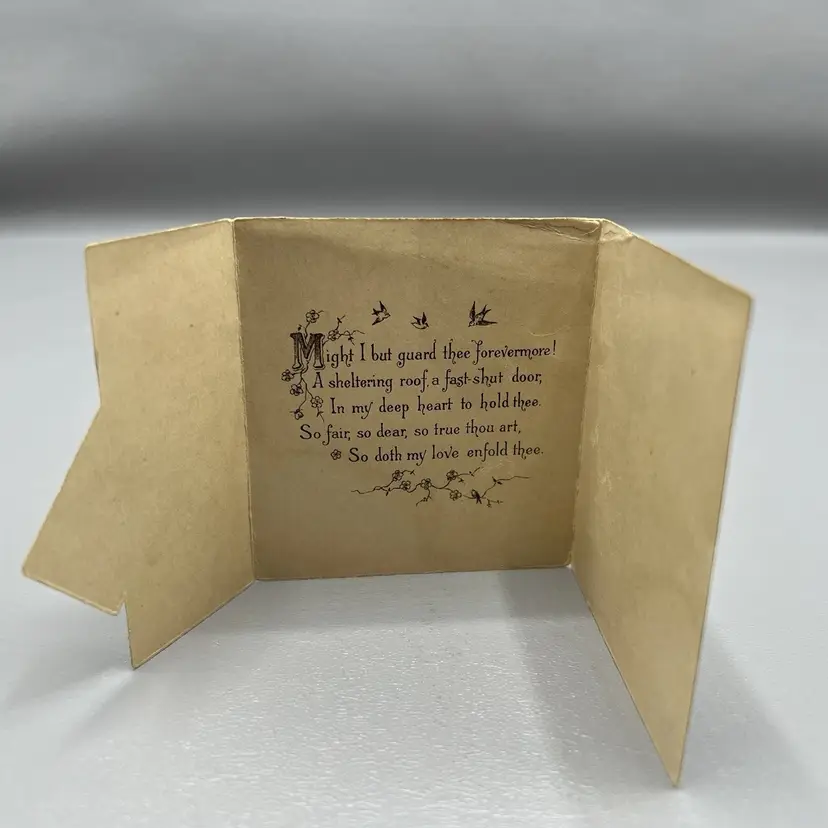 Might I but guard thee forevermore!
A sheltering roof, a fast-shut door,
In my deep heart to hold thee.
So fair, so dear, so true thou art,
So doth my love enfold thee.